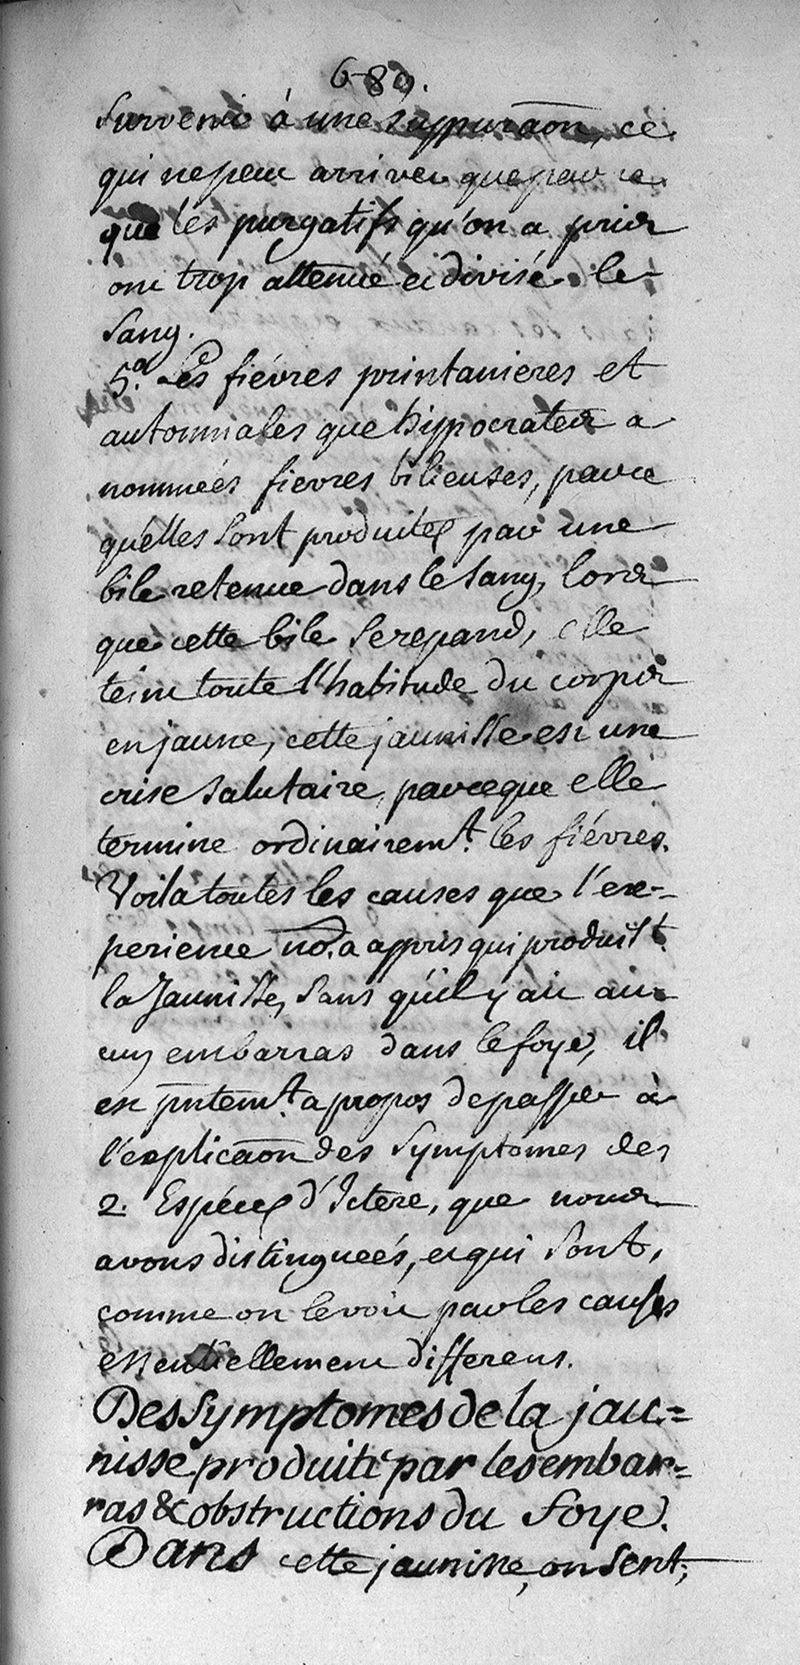 689.
Survenir à une suppuraõn, ce
qui ne peut arriver que par ce
que les purgatifs qu'on a pris
ont trop attenué et divisé le
sang.
5.° Les fiévres printanieres et
automnales que hippocrates a
nommeés fievres bilieuses, parce
quelles sont produites par une
bile retenue dans le sang, lors
que cette bile se repand, elle
teint toute l'habitude du corps
en jaune, cette jaunisse est une
crise salutaire, parceque elle
termine ordinairemt. les fiévres.
Voila toutes les causes que l'ex-
perience no. a appris qui produist.
la Jaunisse, sans qu'il y ait au-
cun embarras dans le foye, il
est pntemt. a propos de passer à
l'explicaõn des symptomes des
2. Espéces d'Ictere, que nous
avons distingueés, et qui sont,
comme on le voit par les causes
essentiellement differens.
Des symptomes de la jau=
nisse produite par les embar=
ras & obstructions du foye.
Dans cette jaunisse, on sent,